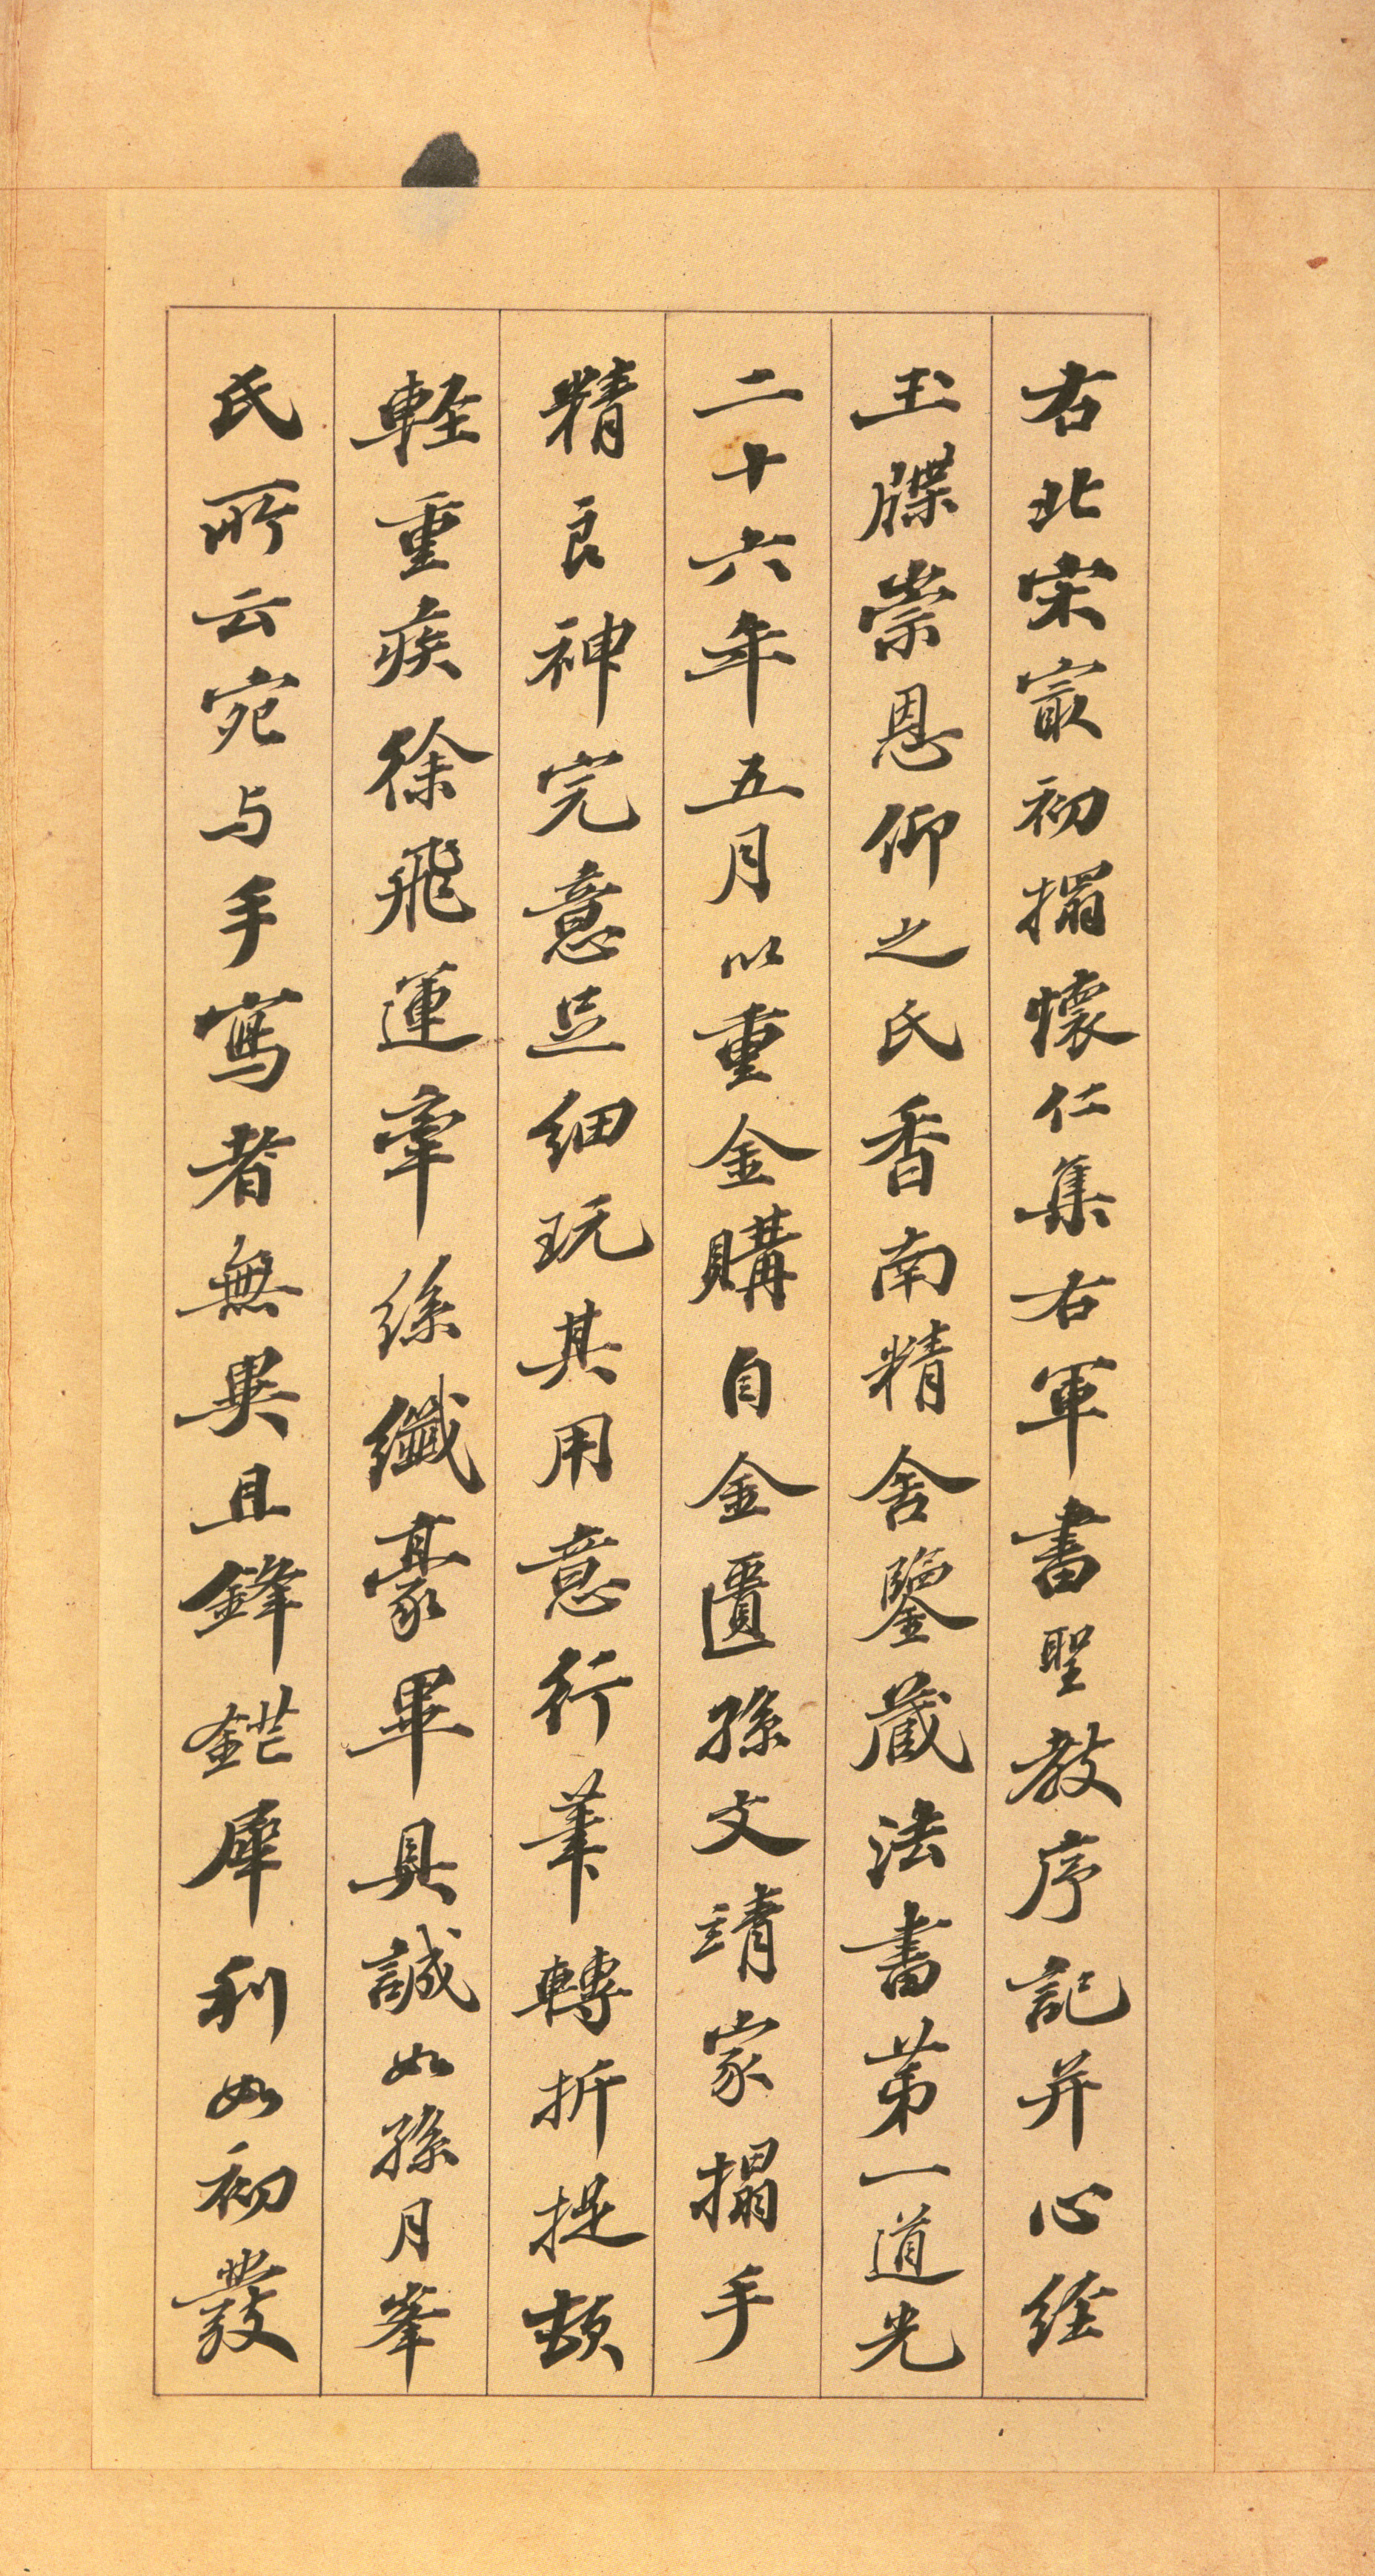 右北宋㝡初搨懷仁集右軍書聖教序記并心経
玉牒崇恩仰之氏香南精舍鑒蔵法書第一道光
二十六年五月以重金購自金匱孫文靖家搨手
精良神完意足細玩其用意行筆轉折提頓
軽重疾徐飛運牽絲纖豪畢具誠如孫月峯
氏所云宛与手寫者無異且鋒鋩犀利如初發